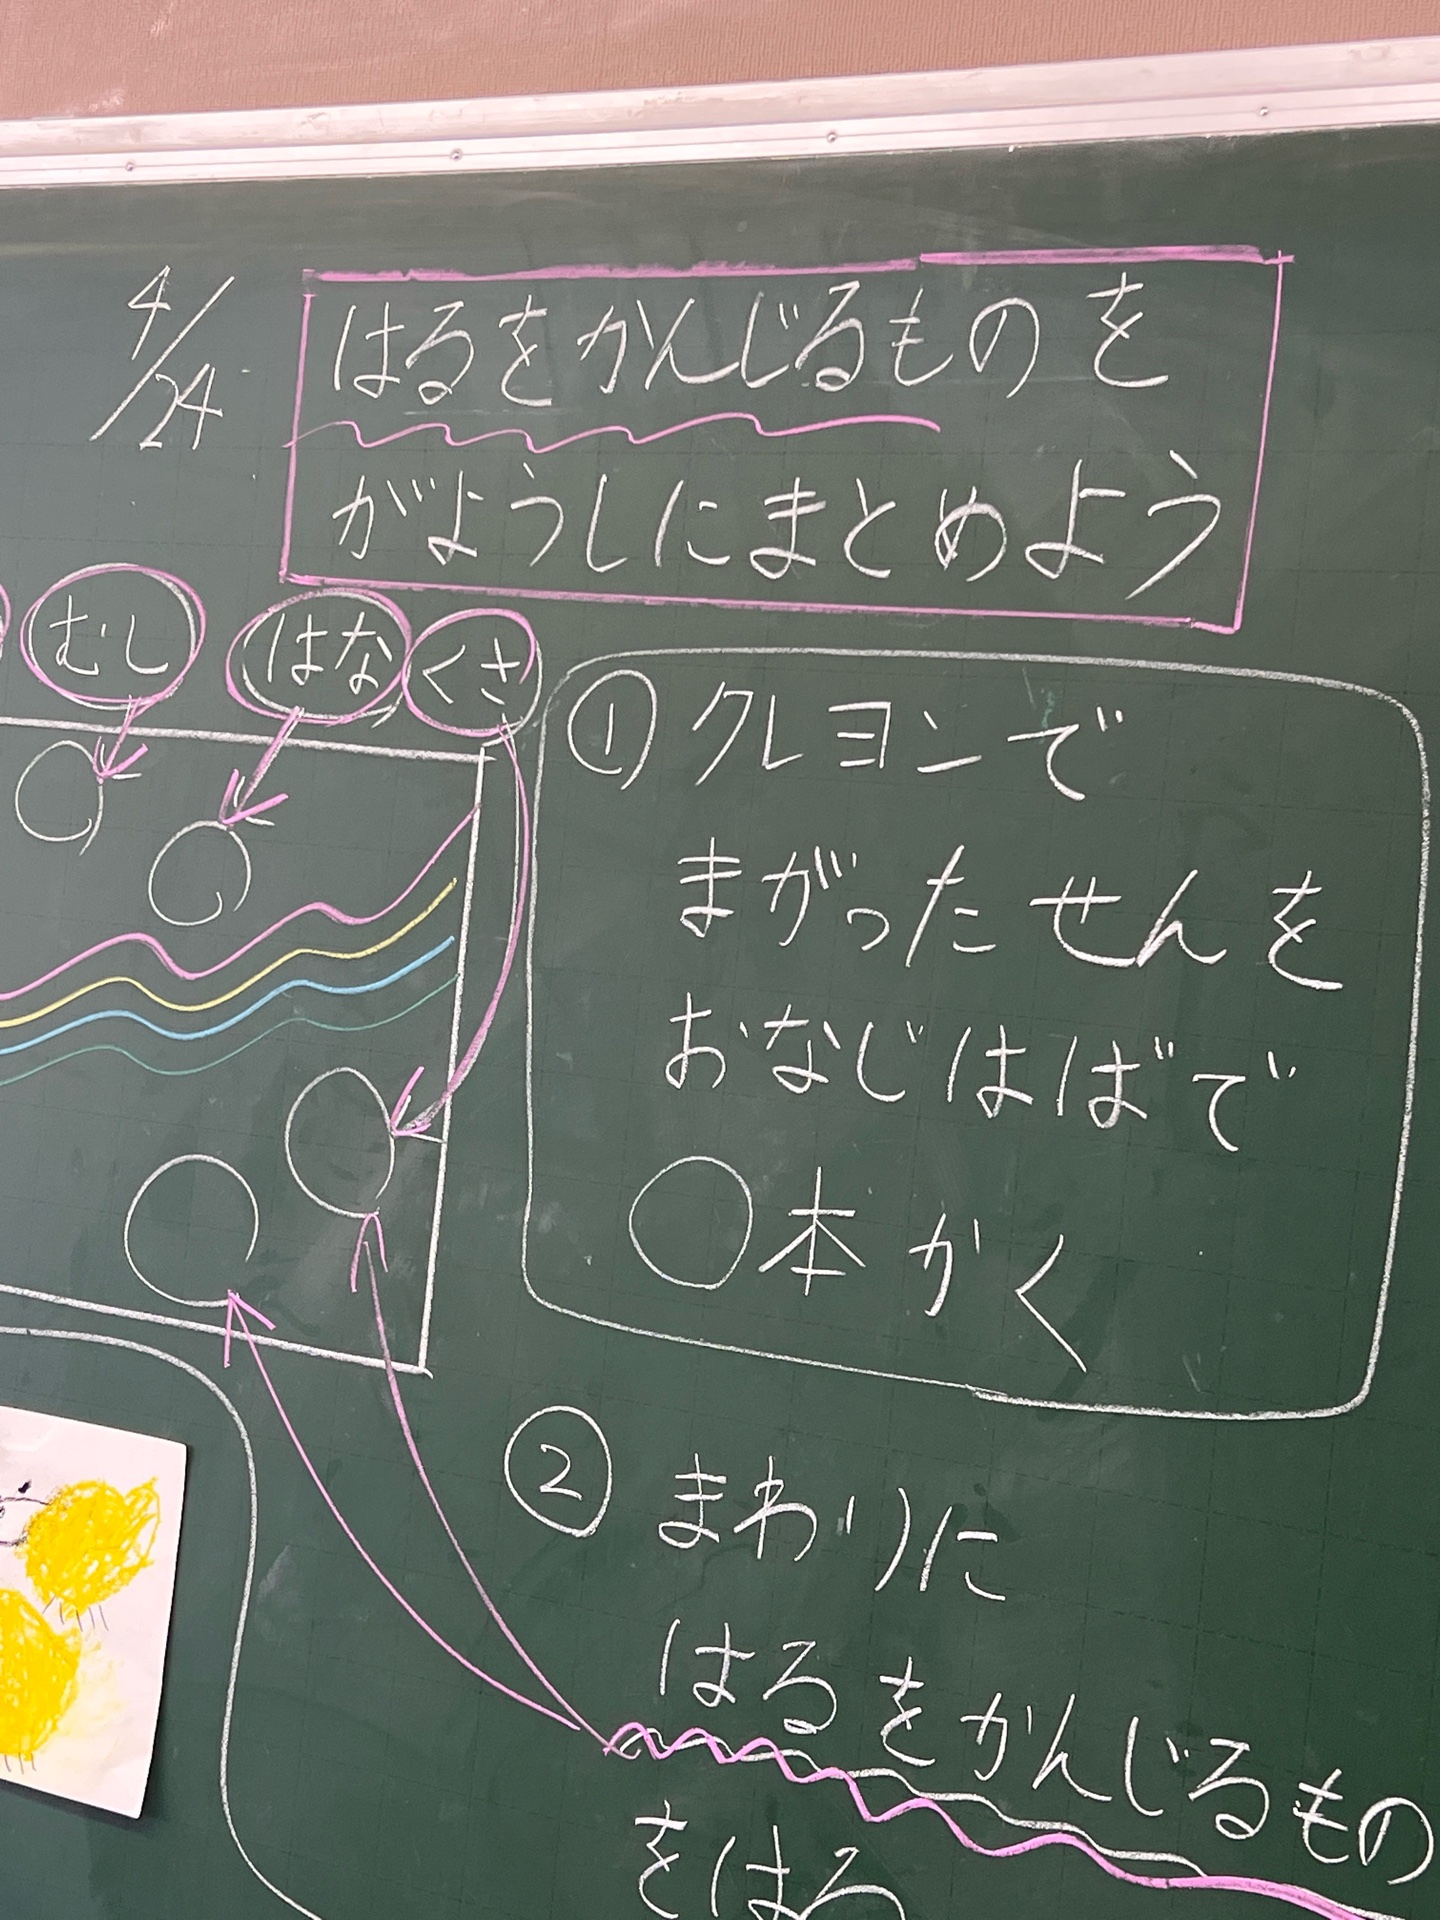 4/24
はるをかんじるものを
がようしにまとめよう
むし
はな
くさ
① クレヨンで
まがったせんを
おなじはばで
◯本かく
② まわりに
はるをかんじるもの
をはる